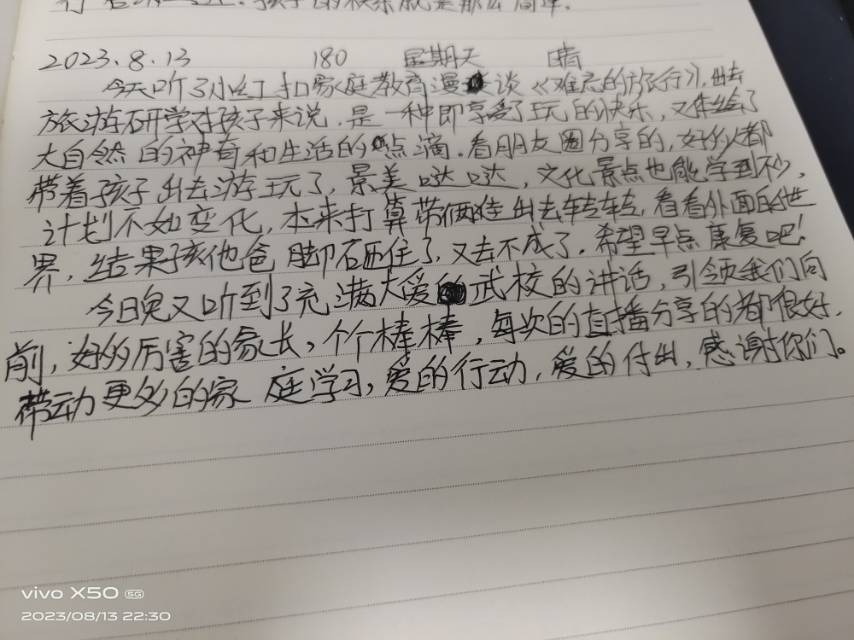 行 孩子的快乐就是那么简单.
2023.8.13 180 星期天 晴
今天听了小红扣家庭教育漫谈《难忘的旅行》,出去
旅游研学对孩子来说,是一种即享受了玩的快乐,又体验了
大自然的神奇和生活的点滴.看朋友圈分享的,好多都
带着孩子出去游玩了,景美哒哒,文化景点也能学到不少,
计划不如变化,本来打算带俩娃出去转转,看看外面的世
界,结果孩他爸脚砸住了,又去不成了.希望早点康复吧!
今日晚又听到了充满大爱的武校的讲话,引领我们向
前,好多厉害的家长,个个棒棒,每次的直播分享的都很好.
带动更多的家庭学习,爱的行动,爱的付出,感谢你们。
vivo X50 5G
2023/08/13 22:30